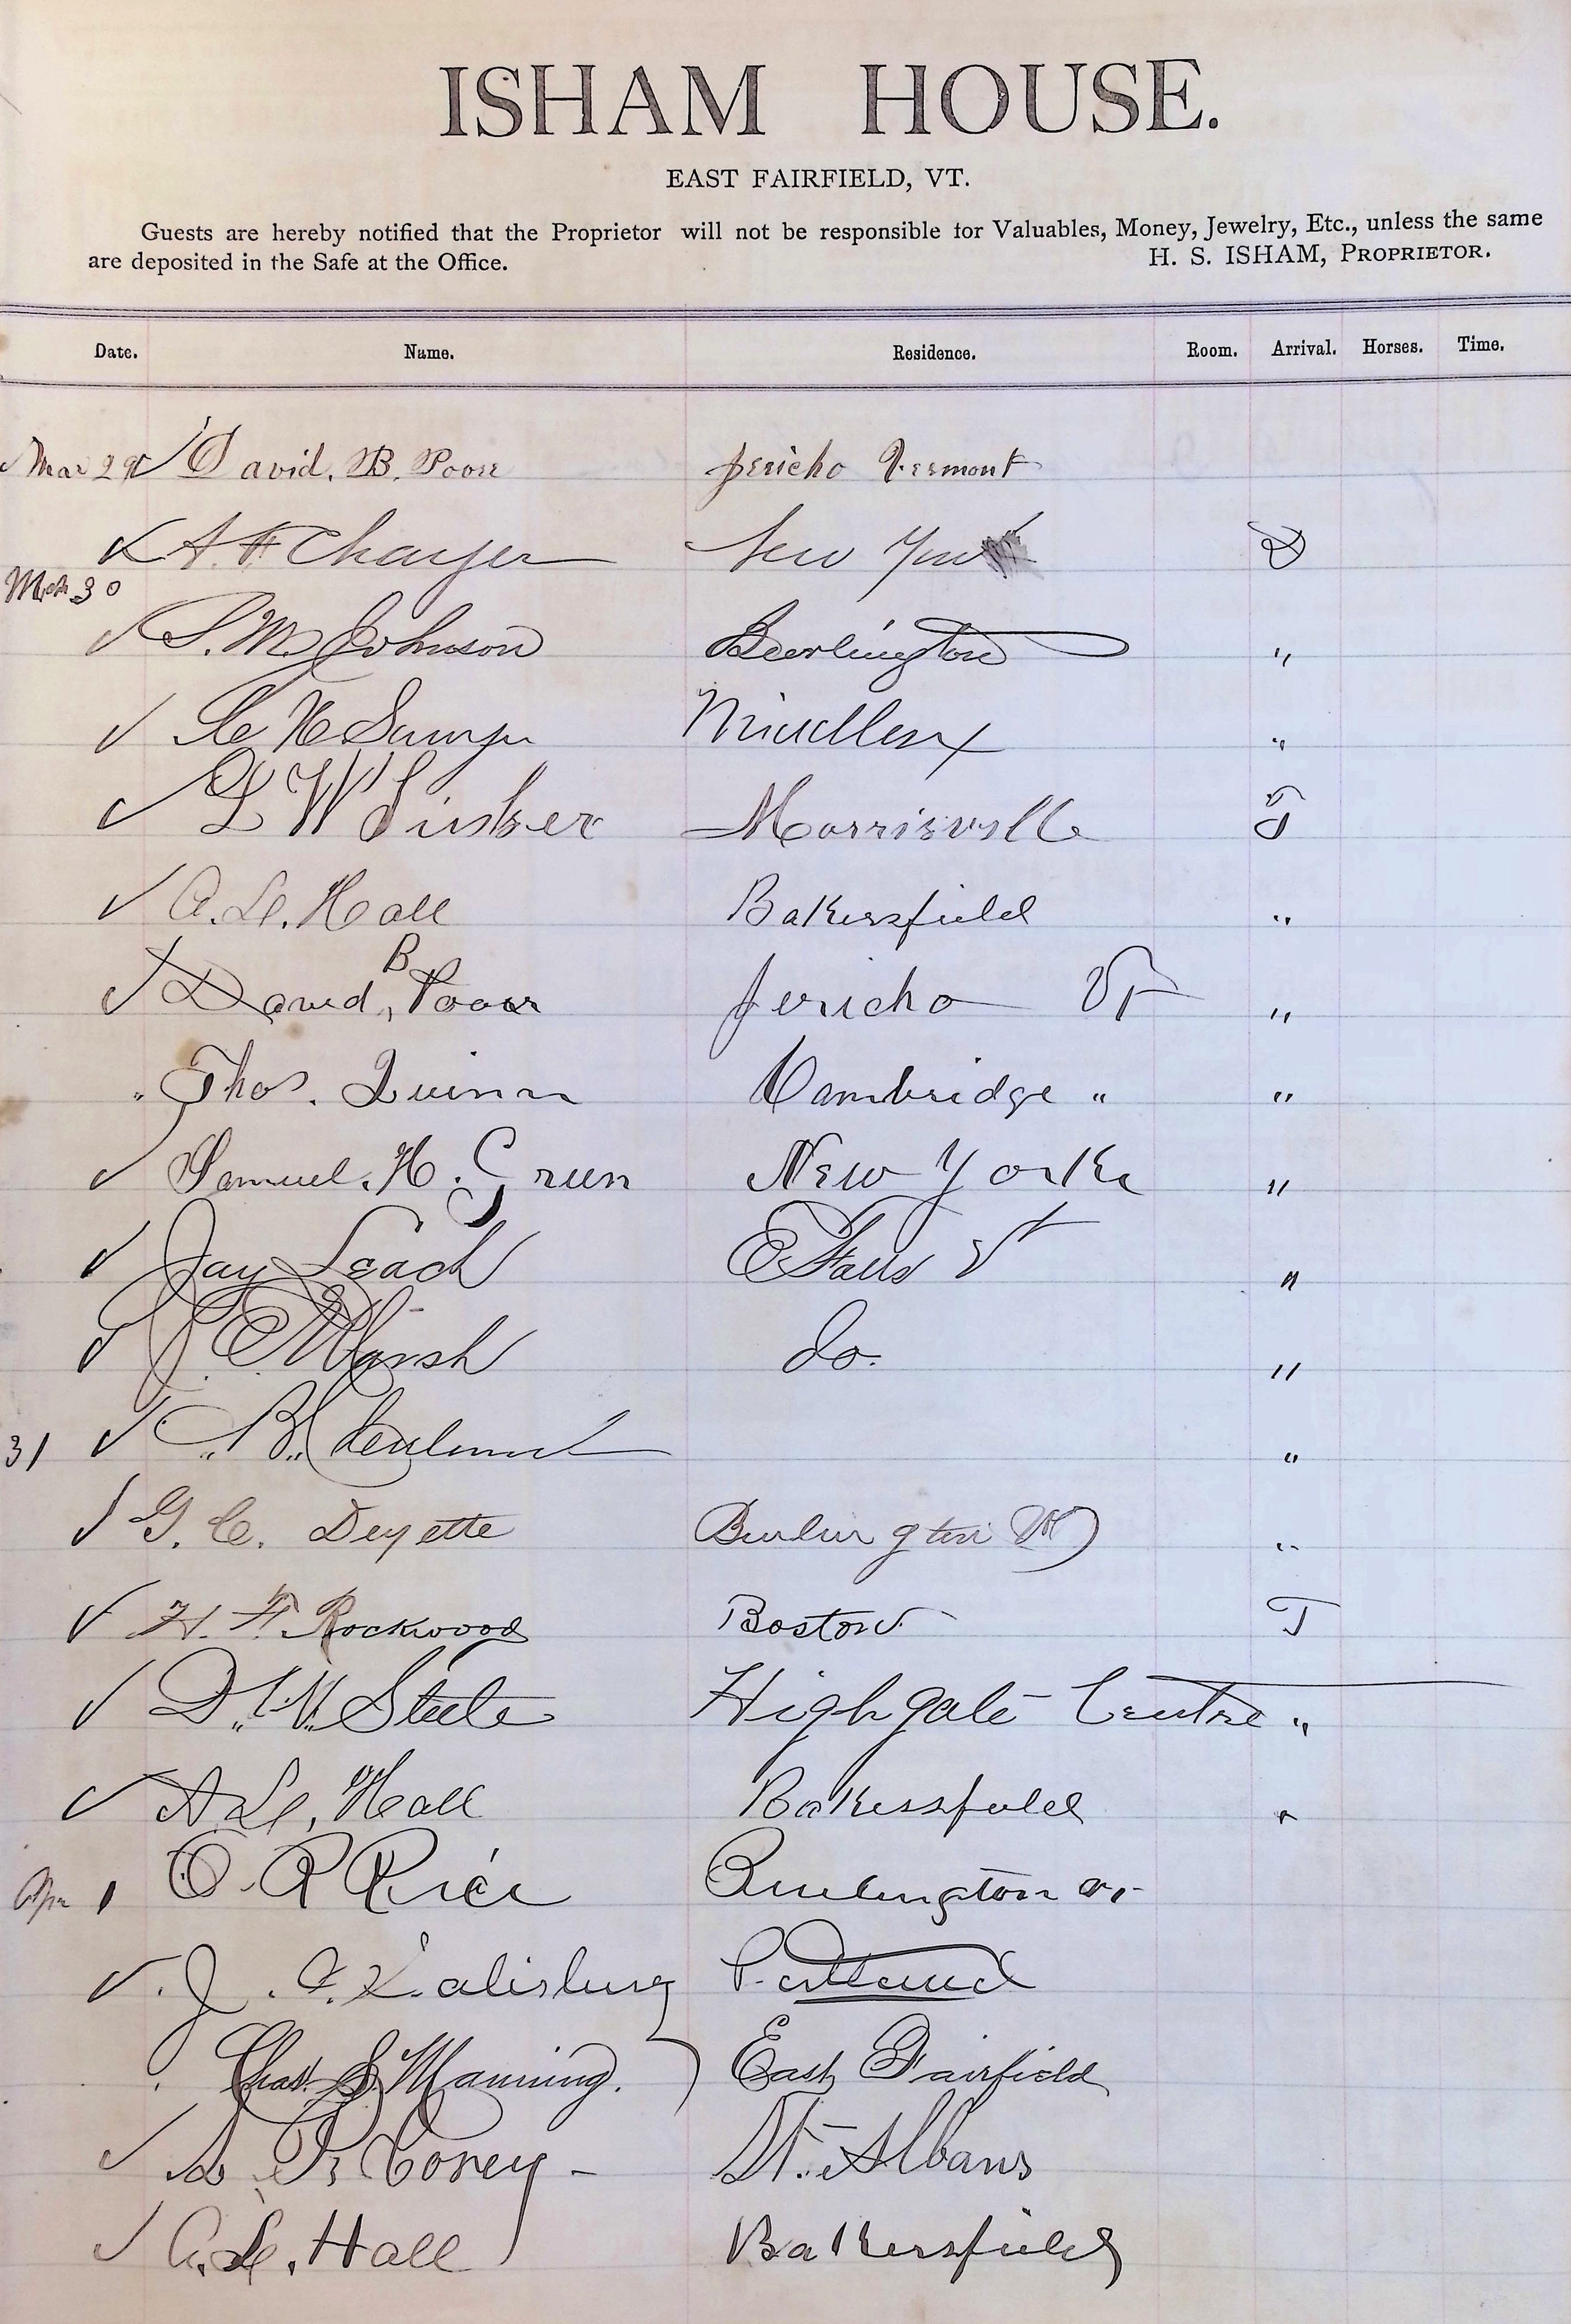 ISHAM HOUSE.
EAST FAIRFIELD, VT.
Guests are hereby notified that the Proprietor will not be responsible for Valuables, Money, Jewelry, Etc., unless the same
are deposited in the Safe at the Office. H. S. ISHAM, PROPRIETOR.
Date. Name. Residence. Room. Arrival. Horses. Time.
Mar 29 David. B. Poor Jericho Vermont
A. F Chayer New York
Mch 30
S. M. Johnson Burlington "
C H Sawyer Middlesex "
L W Tinker Morrisville
A. L. Hall Bakersfield "
David B. Poor Jericho Vt "
Thos. Quinn Cambridge " "
Samuel. H. Green New York "
Jay Leach E Falls Vt "
J. C. Marsh do. "
31 "
G. C. Deyette Burlington Vt "
H. F. Rockwood Boston T
D. W. Steele Highgate Centre "
A L. Hall Bakersfield "
Apr 1 O. R Rice Burlington Vt
J. Salisbury Portland
Chas. S. Manning. East Fairfield
Corey St. Albans
A. L. Hall Bakersfield